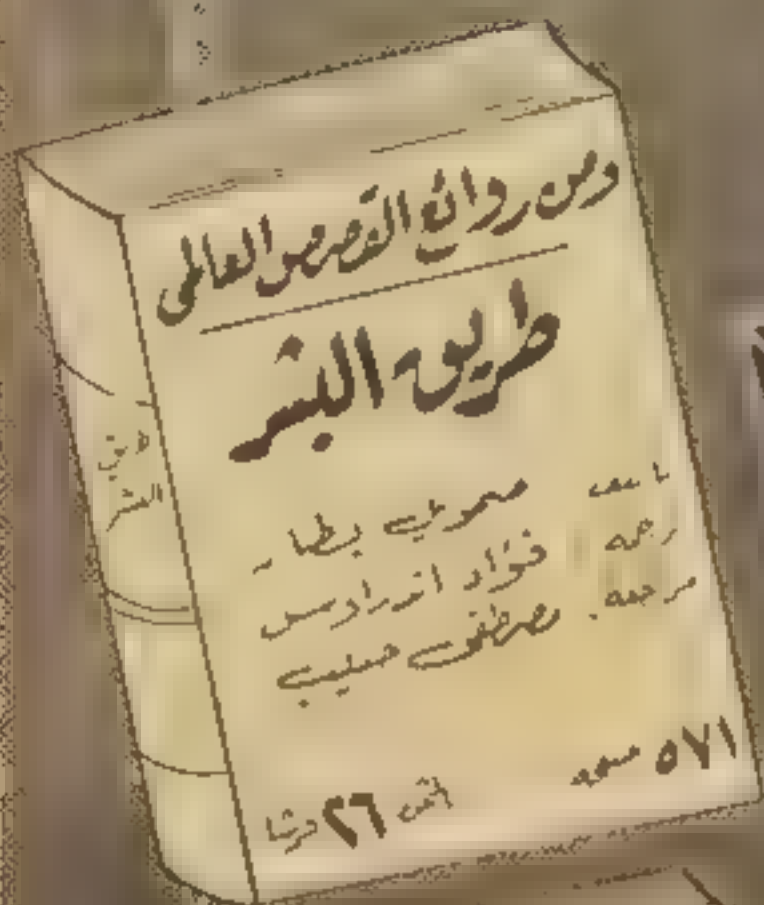 ومن روائع القصص العالمى
طريق البشر
تأليف صمويل بطلر
ترجمة فؤاد اندراوس
مراجعة مصطفى حبيب
٥٧١ صفحه
الثمن ٢٦ قرشا
طريق
البشر